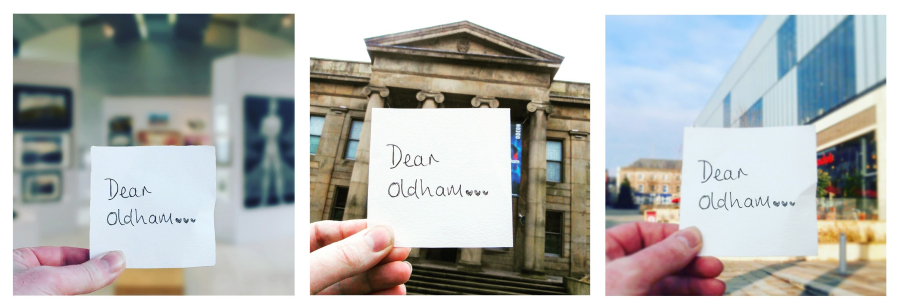 Dear
Oldham...
Dear
Oldham...
Dear
Oldham...